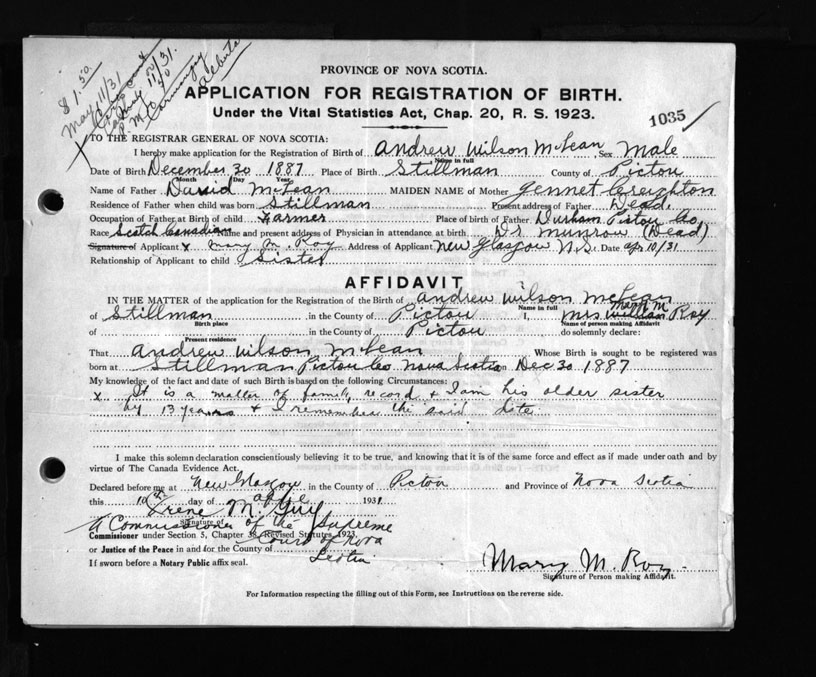 $1.50
May 11/31
May 11/31.
Alberta
PROVINCE OF NOVA SCOTIA.
APPLICATION FOR REGISTRATION OF BIRTH.
Under the Vital Statistics Act, Chap. 20, R. S. 1923.
1035
TO THE REGISTRAR GENERAL OF NOVA SCOTIA:
I hereby make application for the Registration of Birth of Andrew Wilson McLean Sex Male
Name in full
Date of Birth December 30 1887 Place of Birth Stillman County of Pictou
Month Day Year
Name of Father David McLean MAIDEN NAME of Mother Jennet Creighton
Residence of Father when child was born Stillman Present address of Father Dead.
Occupation of Father at Birth of child Farmer Place of birth of Father Durham Pictou Co.
Race Scotch Canadian Name and present address of Physician in attendance at birth Dr Munrow (Dead)
Signature of Applicant x Mary M. Roy Address of Applicant New Glasgow N.S. Date Apr 10/31
Relationship of Applicant to child Sister
AFFIDAVIT
IN THE MATTER of the application for the Registration of the Birth of Andrew Wilson McLean
Name in full
of Stillman in the County of Pictou I, Mrs. William Mary M Roy
Birth place Name of person making Affidavit
of in the County of Pictou do solemnly declare:
Present residence
That Andrew Wilson McLean Whose Birth is sought to be registered was
born at Stillman Pictou Co Nova Scotia Dec 30 1887
My knowledge of the fact and date of such Birth is based on the following Circumstances:
x It is a matter of family record & I am his older sister
by 13 years & I remember the said date
I make this solemn declaration conscientiously believing it to be true, and knowing that it is of the same force and effect as if made under oath and by
virtue of The Canada Evidence Act.
Declared before me at New Glasgow in the County of Pictou and Province of Nova Scotia
this 10th day of April 1931
Irene M. Guy
Signature of
A Commissioner of the Supreme
Commissioner under Section 5, Chapter 38, Revised Statutes, 1923.
Court of Nova
or Justice of the Peace in and for the County of
Scotia
If sworn before a Notary Public affix seal.
Mary M. Roy
Signature of Person making Affidavit.
For Information respecting the filling out of this Form, see Instructions on the reverse side.